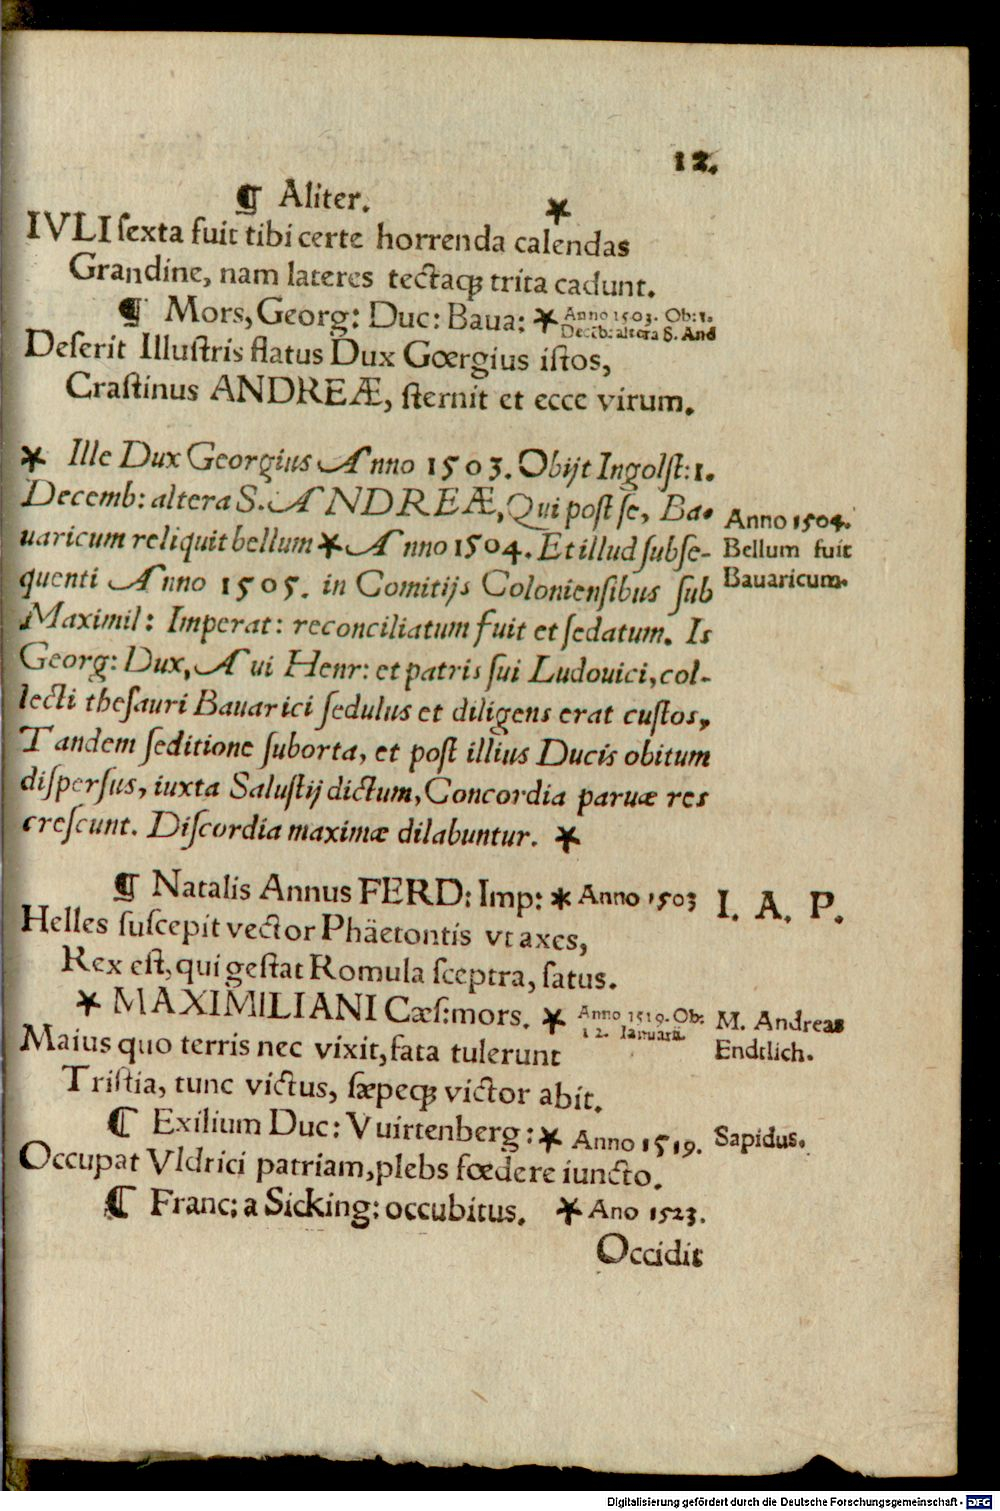 12.
¶ Aliter. *
IVLI ſexta fuit tibi certe horrenda calendas
Grandine, nam lateres tectaqꝫ trita cadunt.
¶ Mors, Georg: Duc: Baua: * Anno 1503. Ob: 1.
Decēb: altera S. And
Deſerit Illuſtris flatus Dux Gœrgius iſtos,
Craſtinus ANDREÆ, ſternit et ecce virum.
* Ille Dux Georgius Anno 1503. Obijt Ingolſt: 1.
Decemb: altera S. ANDREÆ, Qui poſt ſe, Ba-
uaricum reliquit bellum * Anno 1504. Et illud ſubſe-
quenti Anno 1505. in Comitijs Colonienſibus ſub
Maximil: Imperat: reconciliatum fuit et ſedatum. Is
Georg: Dux, Aui Henr: et patris ſui Ludouici, col-
lecti theſauri Bauarici ſedulus et diligens erat cuſtos,
Tandem ſeditione ſuborta, et poſt illius Ducis obitum
diſperſus, iuxta Saluſtij dictum, Concordia paruæ res
creſcunt. Diſcordia maximæ dilabuntur. *
Anno 1504.
Bellum fuit
Bauaricum.
¶ Natalis Annus FERD: Imp: * Anno 1503 I. A. P.
Helles ſuſcepit vector Phäetontis vt axes,
Rex eſt, qui geſtat Romula ſceptra, ſatus.
* MAXIMILIANI Cæſ: mors. * Anno 1519. Ob:
12. Ianuarii.
M. Andreas
Endtlich.
Maius quo terris nec vixit, fata tulerunt
Triſtia, tunc victus, ſæpeqꝫ victor abit.
¶ Exilium Duc: Vuirtenberg: * Anno 1519. Sapidus.
Occupat Vldrici patriam, plebs fœdere iuncto.
¶ Franc: a Sicking: occubitus. * Ano 1523.
Occidit
Digitalisierung gefördert durch die Deutsche Forschungsgemeinschaft - DFG